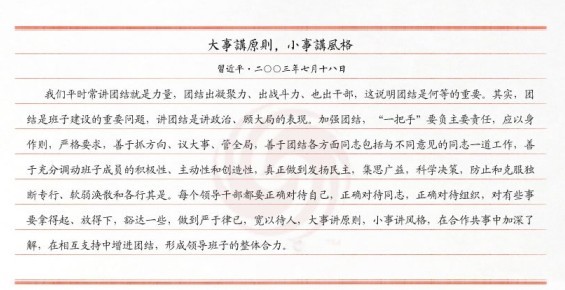 大事講原則，小事講風格
習近平·二〇〇三年七月十八日
我们平时常讲团结就是力量，团结出凝聚力、出战斗力、也出干部，这说明团结是何等的重要。其实，团
结是班子建设的重要问题，讲团结是讲政治、顾大局的表现。加强团结，“一把手”要负主要责任，应以身
作则，严格要求，善于抓方向、议大事、管全局，善于团结各方面同志包括与不同意见的同志一道工作，善
于充分调动班子成员的积极性、主动性和创造性，真正做到发扬民主，集思广益，科学决策，防止和克服独
断专行、软弱涣散和各行其是。每个领导干部都要正确对待自己，正确对待同志，正确对待组织，对有些事
要拿得起、放得下，豁达一些，做到严于律己，宽以待人，大事讲原则，小事讲风格，在合作共事中加深了
解，在相互支持中增进团结，形成领导班子的整体合力。